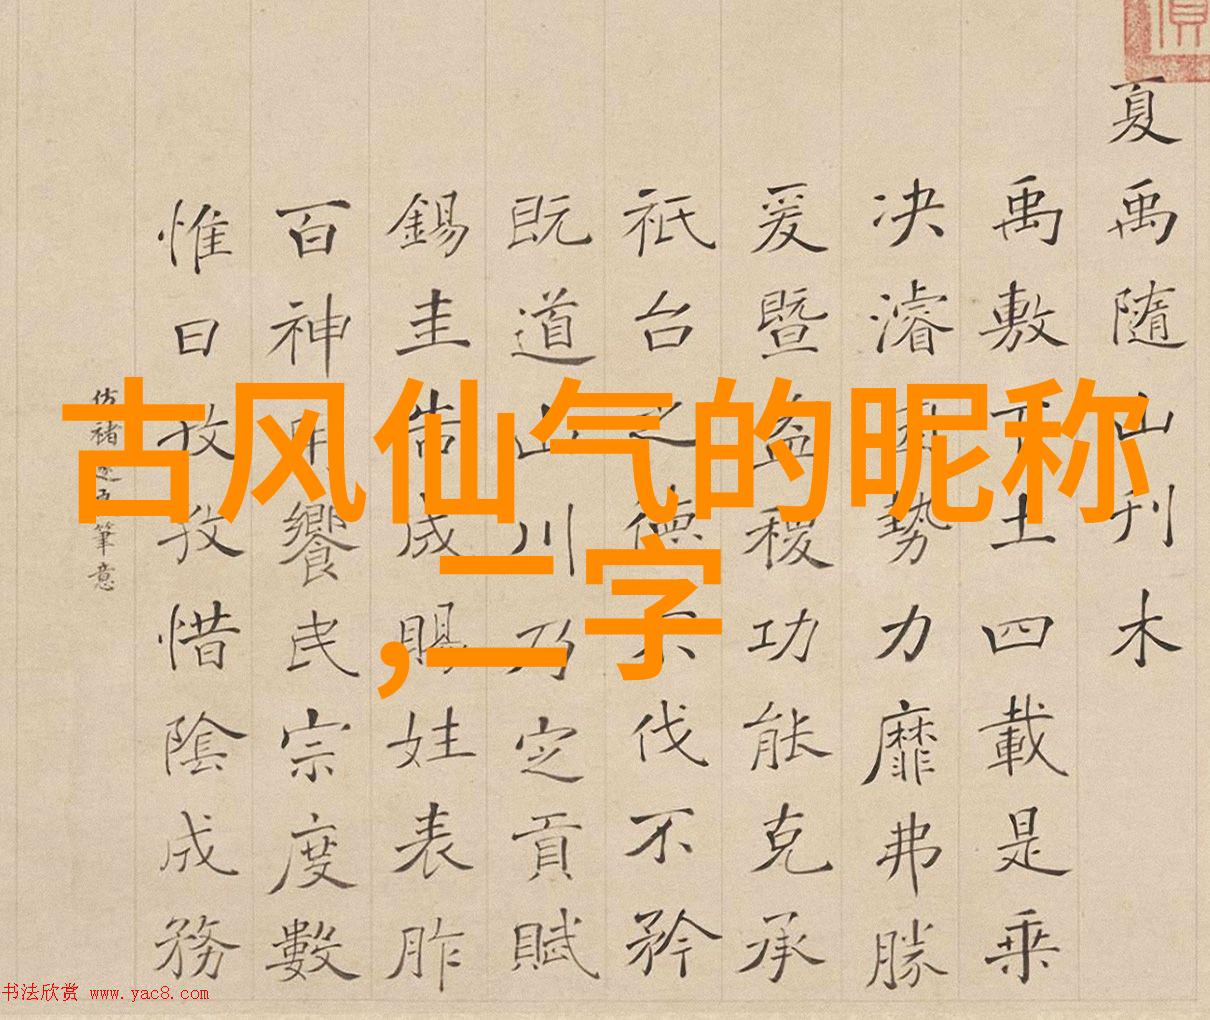 古风仙气的昵称
,二字
夏禹隨山刊木
禹敷下土四載是乘
决濬因勢力靡弗勝
爰暨益稷功能克承
祇台之德不伐不矜
既道山川乃定貢賦
錫圭告成賜姓表胙
百神用饗民宗度數
惟日孜孜惜陰成務
仿褚遂良筆意
书法欣赏 www.yac8.com